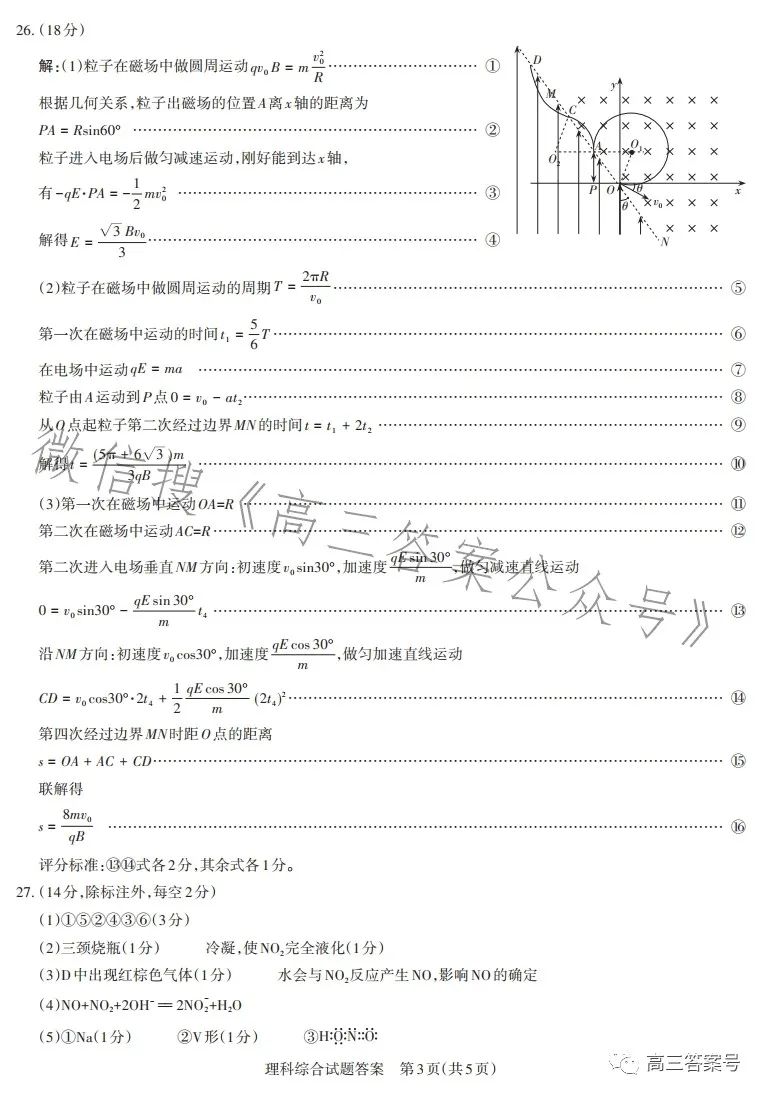 26.(18分)
解:(1)粒子在磁场中做圆周运动qv₀B = m v₀²/R …… ①
根据几何关系,粒子出磁场的位置A离x轴的距离为
PA = Rsin60° …… ②
粒子进入电场后做匀减速运动,刚好能到达x轴,
有-qE·PA = -1/2 mv₀² …… ③
解得E = √3 Bv₀/3 …… ④
D
y
M
C
A
O₁
O₂
P
O
θ
x
θ
v₀
N
(2)粒子在磁场中做圆周运动的周期T = 2πR/v₀ …… ⑤
第一次在磁场中运动的时间t₁ = 5/6 T …… ⑥
在电场中运动qE = ma …… ⑦
粒子由A运动到P点0 = v₀ - at₂ …… ⑧
从O点起粒子第二次经过边界MN的时间t = t₁ + 2t₂ …… ⑨
解得t = (5π + 6√3)m/3qB …… ⑩
(3)第一次在磁场中运动OA=R …… ⑪
第二次在磁场中运动AC=R …… ⑫
第二次进入电场垂直NM方向:初速度v₀sin30°,加速度qE sin30°/m,做匀减速直线运动
0 = v₀sin30° - qE sin30°/m t₄ …… ⑬
沿NM方向:初速度v₀cos30°,加速度qE cos30°/m,做匀加速直线运动
CD = v₀cos30°·2t₄ + 1/2 qE cos30°/m (2t₄)² …… ⑭
第四次经过边界MN时距O点的距离
s = OA + AC + CD …… ⑮
联解得
s = 8mv₀/qB …… ⑯
评分标准:⑬⑭式各2分,其余式各1分。
27.(14分,除标注外,每空2分)
(1)①⑤②④③⑥(3分)
(2)三颈烧瓶(1分) 冷凝,使NO₂完全液化(1分)
(3)D中出现红棕色气体(1分) 水会与NO₂反应产生NO,影响NO的确定
(4)NO+NO₂+2OH⁻ == 2NO₂⁻+H₂O
(5)①Na(1分) ②V形(1分) ③H:O:N::O:
理科综合试题答案 第3页(共5页)
微信搜《高三答案公众号》
高三答案号